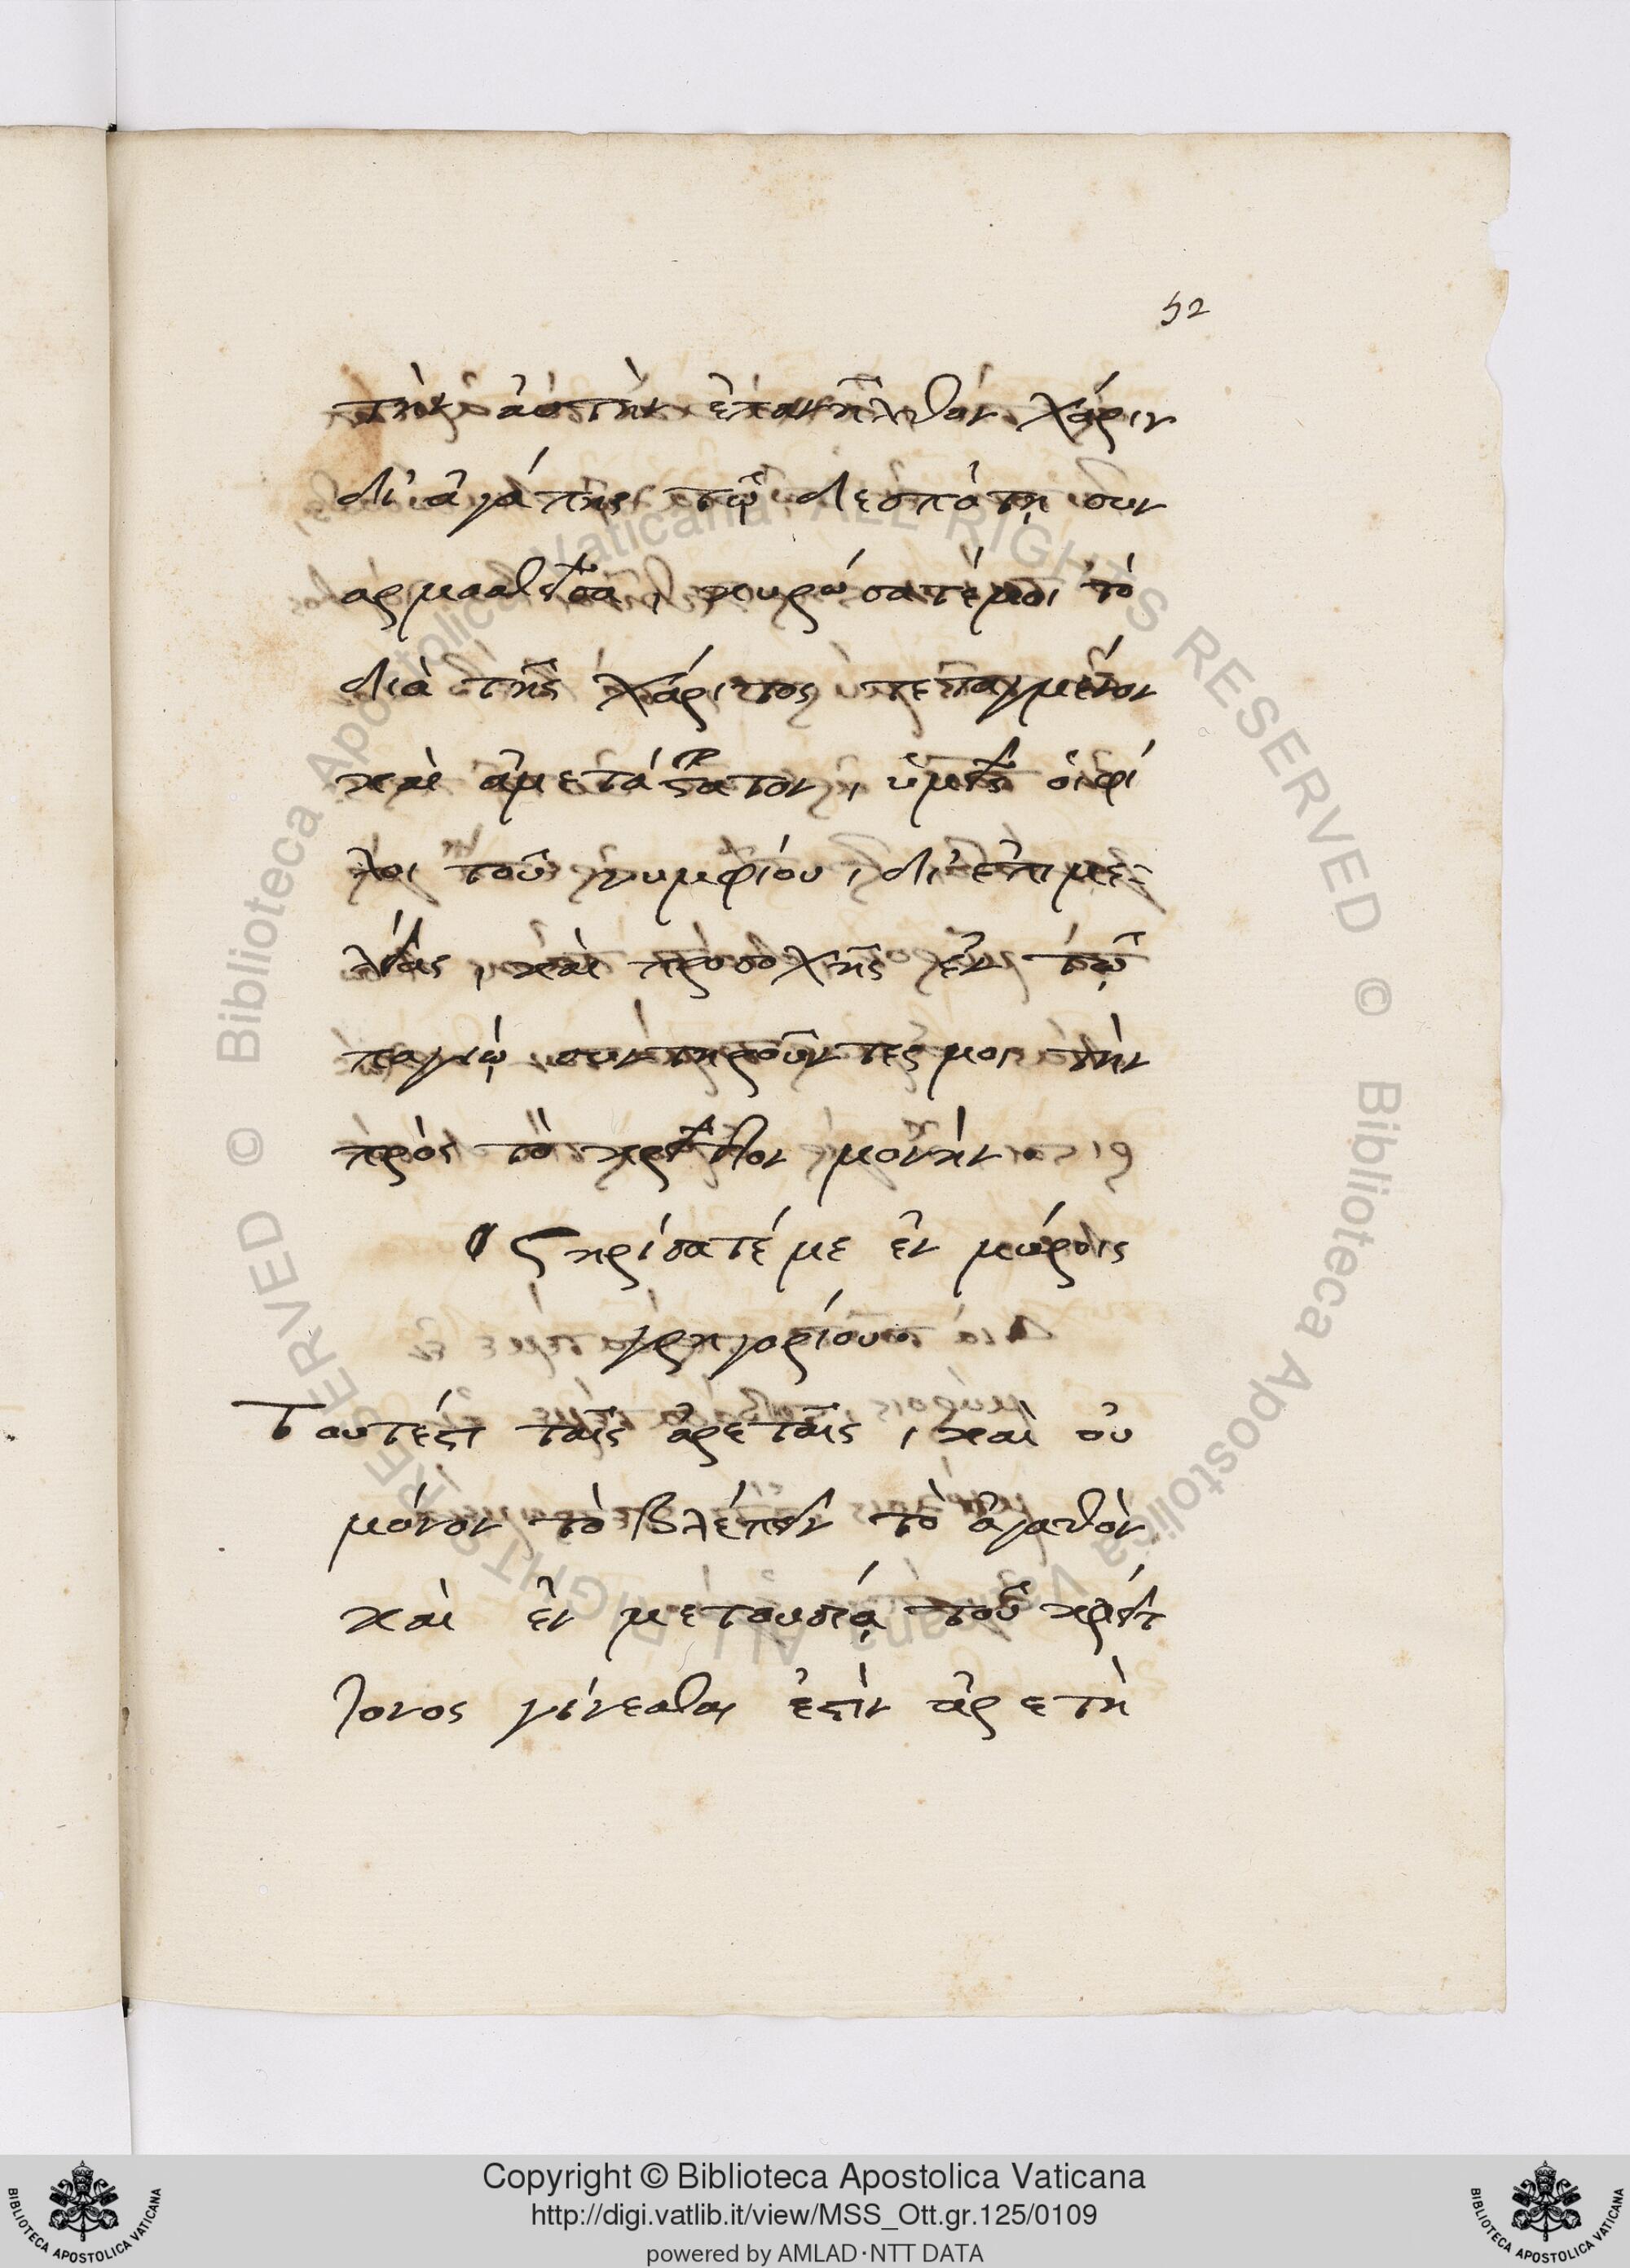 52
τὴν αὐτὴν ἐπανῆλθον χάριν
δι' ἀγάπης τῷ δεσπότῃ συν
αρμοσθεῖσα, κυρώσατέ μοι τὸ
διὰ τῆς χάριτος πεπαγμένον
καὶ ἀμετάστατον, ὑμεῖς οἱ φί
λοι τοῦ νυμφίου, δι' ἐπιμε-
λείας, καὶ προσοχῆς ἐν τῷ
παγίῳ συντηροῦντές μοι τὴν
πρὸς τὸ κρεῖττον μονὴν.
Στηρίσατέ με ἐν μύροις
γρηγορίου
Τουτέστι ταῖς ἀρεταῖς, καὶ οὐ
μόνον τὸ βλέπειν τὸ ἀγαθὸν
καὶ ἐν μετουσίᾳ τοῦ κρείτ
τονος γίνεσθαι ἐστὶν ἀρετὴ
Copyright © Biblioteca Apostolica Vaticana
http://digi.vatlib.it/view/MSS_Ott.gr.125/0109
powered by AMLAD·NTT DATA
BIBLIOTECA APOSTOLICA VATICANA
BIBLIOTECA APOSTOLICA VATICANA
© Biblioteca Apostolica Vaticana ALL RIGHTS RESERVED
© Biblioteca Apostolica Vaticana ALL RIGHTS RESERVED